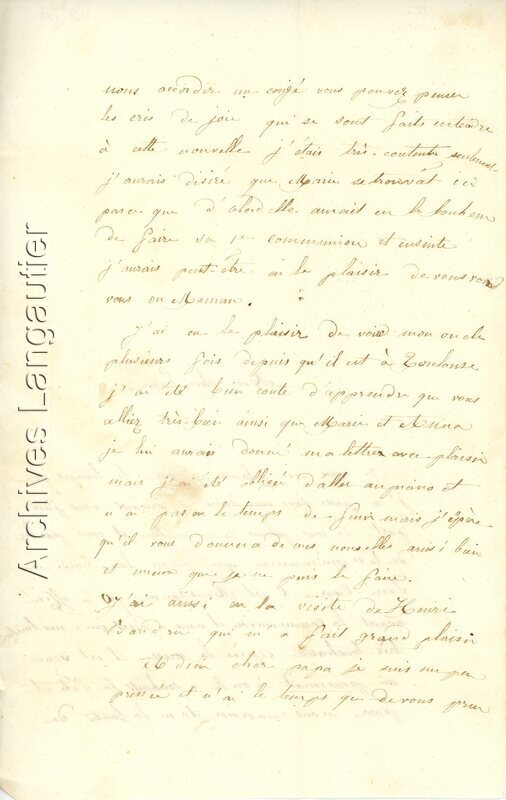 nous accorder un congé vous pouvez penser
les cris de joie qui se sont faits entendre
à cette nouvelle j'étais très-contente seulement
j'aurais désiré que Marie se trouvât ici
parce que d'abord elle aurait eu le bonheur
de faire sa 1e communion et ensuite
j'aurais peut-être eu le plaisir de vous voir
vous ou Maman.
J'ai eu le plaisir de voir mon oncle
plusieurs fois depuis qu'il est à Toulouse
j'ai été bien conte d'apprendre que vous
alliez très-bien ainsi que Marie et Anna
je lui aurais donné ma lettre avec plaisir
mais j'ai été obligée d'aller au piano et
n'ai pas eu le temps de finir mais j'espère
qu'il vous donnera de mes nouvelles aussi bien
et mieux que je ne puis le faire.
J'ai aussi eu la visite de Henri
qui m'a fait grand plaisir
Adieu cher papa je suis un peu
pressée et n'ai le temps que de vous prier
Archives Langautier